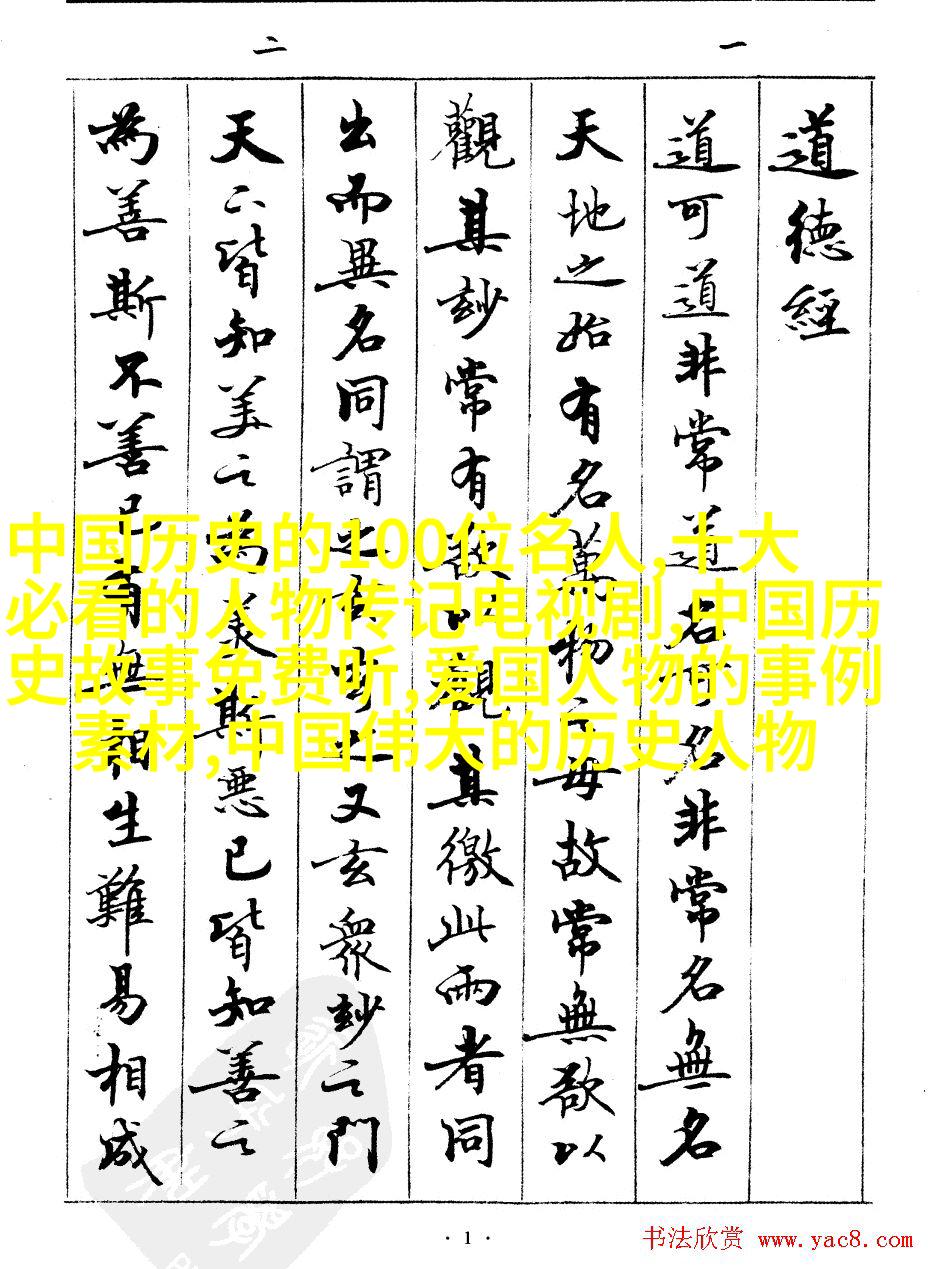 一
二
道德經
道可道非常道名可名非常名無名
天地之始有名萬物之母故常無欲以
觀其玅常有欲以觀其徼此兩者同
出而異名同謂之玄玄之又玄眾玅之門
天下皆知美之為美斯惡已皆知善之
為善斯不善已有無相生難易相成
中国历史的100位名人,十大
必看的人物传记电视剧,中国历
史故事免费听,爱国人物的事例
素材,中国伟大的历史人物
· 1 ·
书法欣赏 www.yac8.com